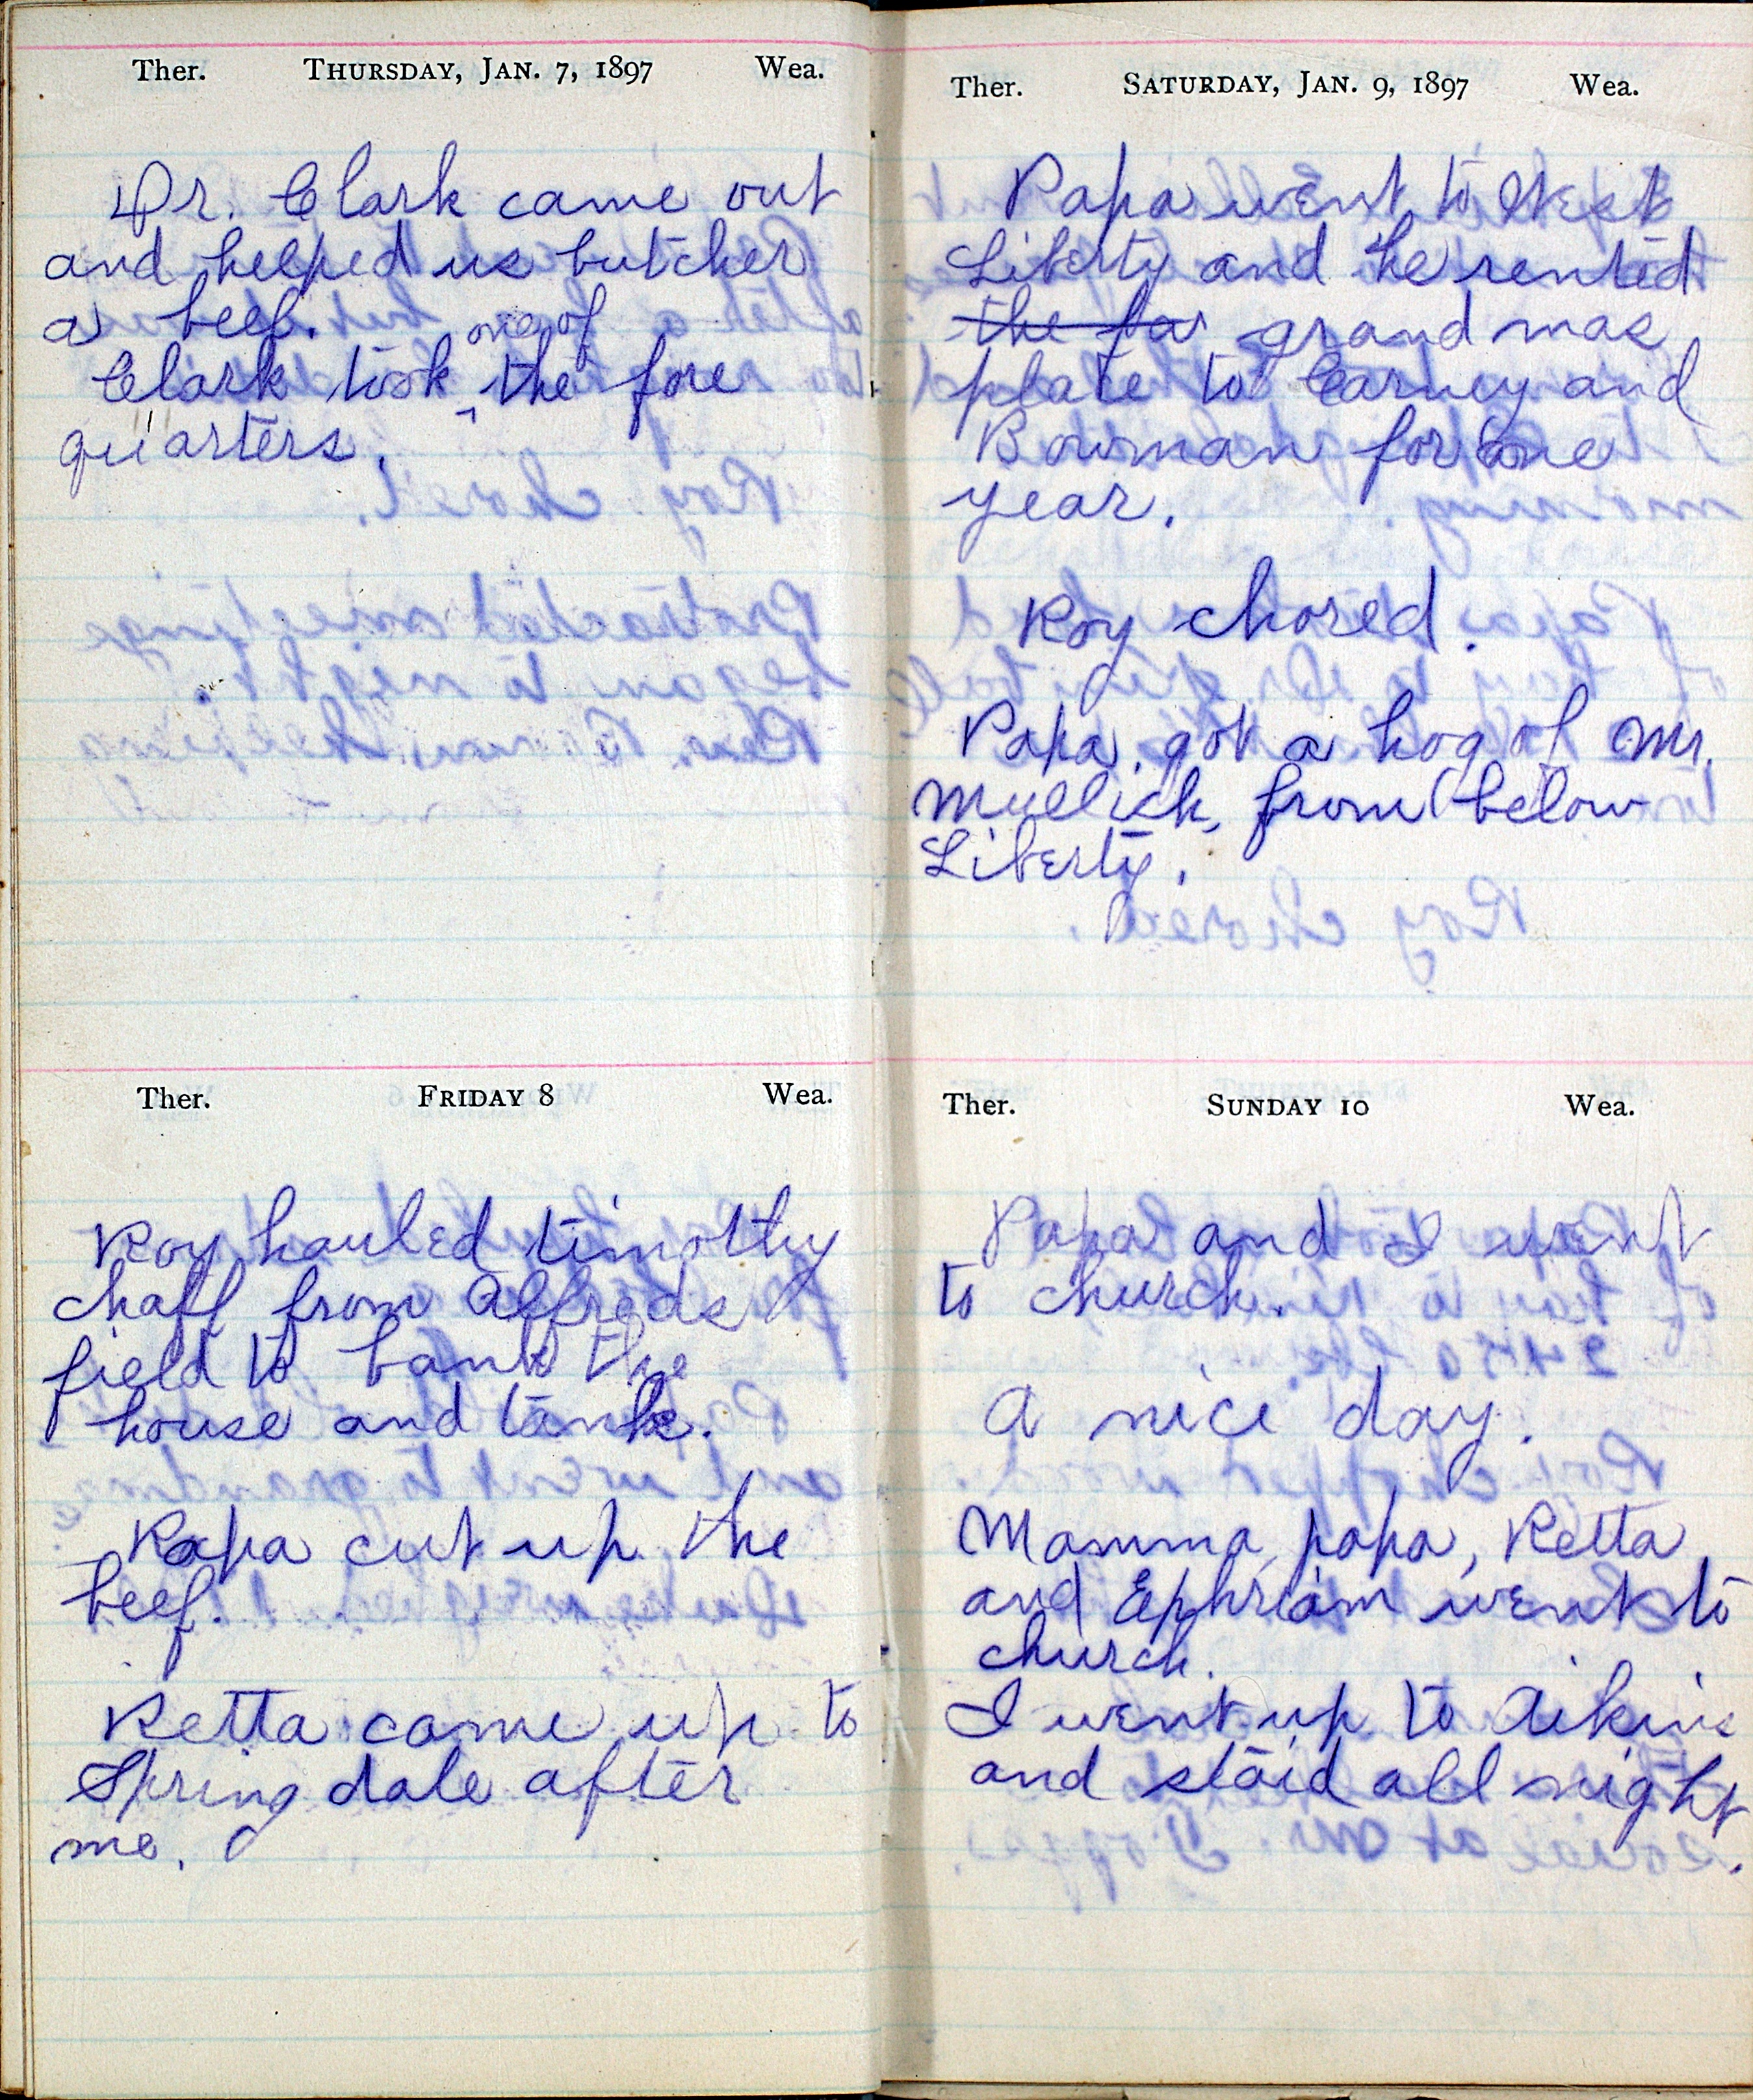 Ther. THURSDAY, JAN. 7, 1897 Wea.
Dr. Clark came out
and helped us butcher
a beef.
one of
Clark took ^ the fore
quarters.
Ther. FRIDAY 8 Wea.
Roy hauled timothy
chaff from Alfreds
field to bank the
house and tank.
Papa cut up the
beef.
Retta came up to
Spring dale after
me.
Ther. SATURDAY, JAN. 9, 1897 Wea.
Papa went to West
Liberty and he rented
the far grand mas
place to Carney and
Bowman for one
year.
Roy chored.
Papa got a hog of Mr.
Mullick, from below
Liberty.
Ther. SUNDAY 10 Wea.
Papa and I went
to church.
A nice day.
Mamma, papa, Retta
and Ephriam went to
church.
I went up to Aikins
and staid all night.